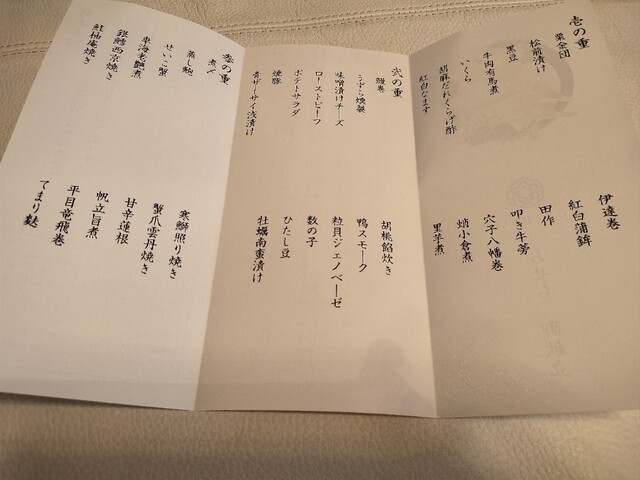 壱の重
栗金団
松前漬け
黒豆
牛肉有馬煮
いくら
胡麻だれくらげ酢
紅白なます
伊達巻
紅白蒲鉾
田作
叩き牛蒡
穴子八幡巻
蛸小倉煮
里芋煮
弐の重
鰻巻
うずら燻製
味噌漬けチーズ
ローストビーフ
ポテトサラダ
焼豚
青ザーサイ浅漬け
胡桃飴炊き
鴨スモーク
粒貝ジェノベーゼ
数の子
ひたし豆
牡蠣南蛮漬け
参の重
煮〆
蒸し鮑
せいこ蟹
車海老艶煮
銀鱈西京焼き
鮭柚庵焼き
寒鰤照り焼き
蟹爪雲丹焼き
甘辛蓮根
帆立旨煮
平目竜飛巻
てまり麩